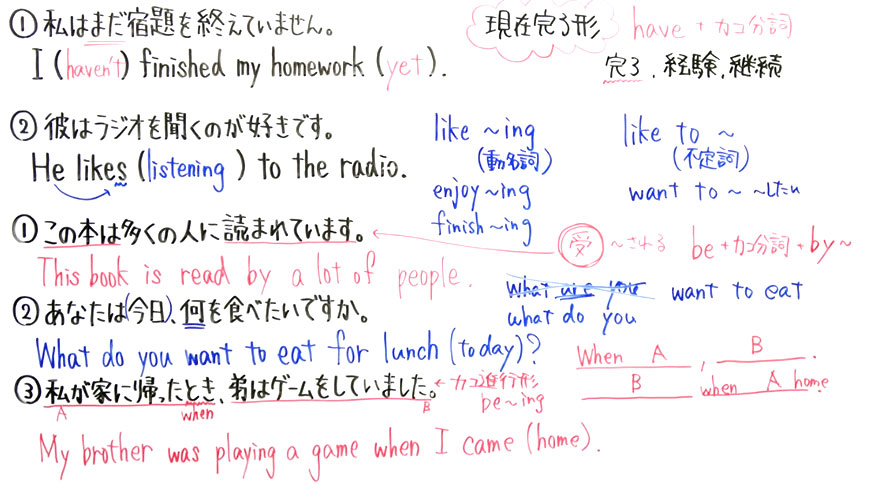 ①私はまだ宿題を終えていません。
I (haven't) finished my homework (yet).
現在完了形 have + カコ分詞
完了、経験、継続
②彼はラジオを聞くのが好きです。
He likes (listening) to the radio.
like ~ing
(動名詞)
enjoy ~ing
finish ~ing
like to ~
(不定詞)
want to ~ ~したい
①この本は多くの人に読まれています。
受 ~される be+カコ分詞+by~
This book is read by a lot of people.
②あなたは(今日)、何を食べたいですか。
What are you want to eat
what do you
What do you want to eat for lunch (today)?
When A , B .
B when A home
③私が家に帰ったとき、弟はゲームをしていました。
A when B
←カコ進行形
be~ing
My brother was playing a game when I came (home).